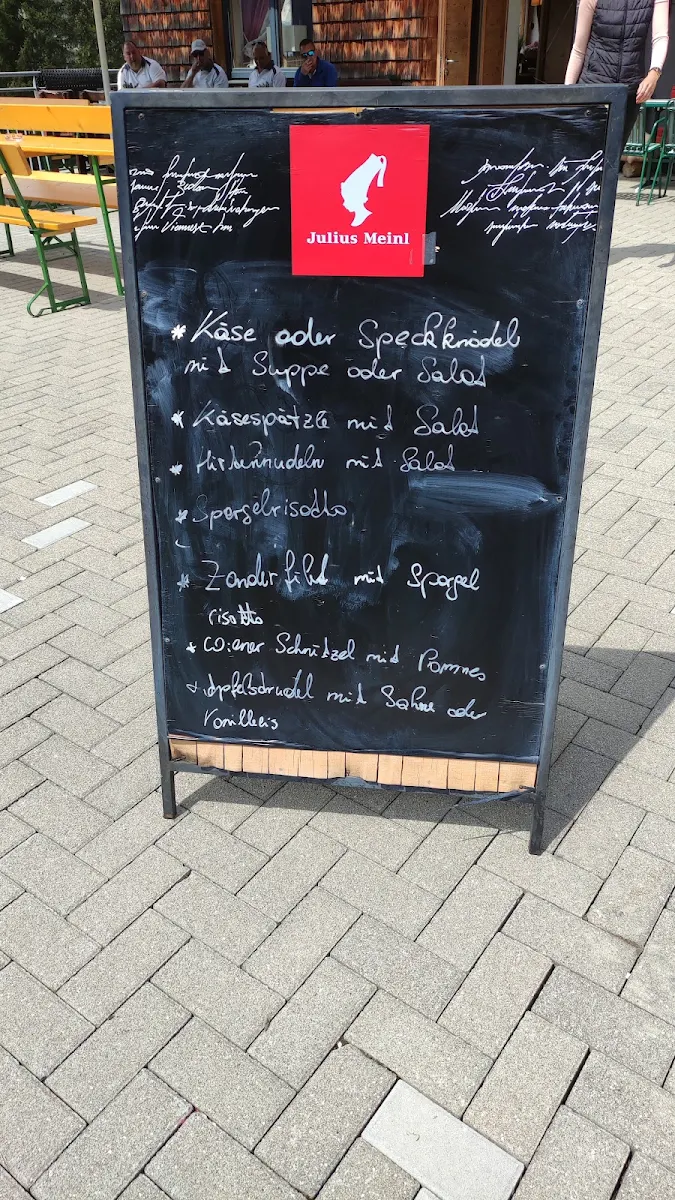 Julius Meinl
* Käse oder Speckknödel
mit Suppe oder Salat
* Käsespätzle mit Salat
* Hirtennudeln mit Salat
* Spargelrisotto
* Zanderfilet mit Spargel
risotto
* Wiener Schnitzel mit Pommes
* Apfelstrudel mit Sahne oder
Vanilleeis